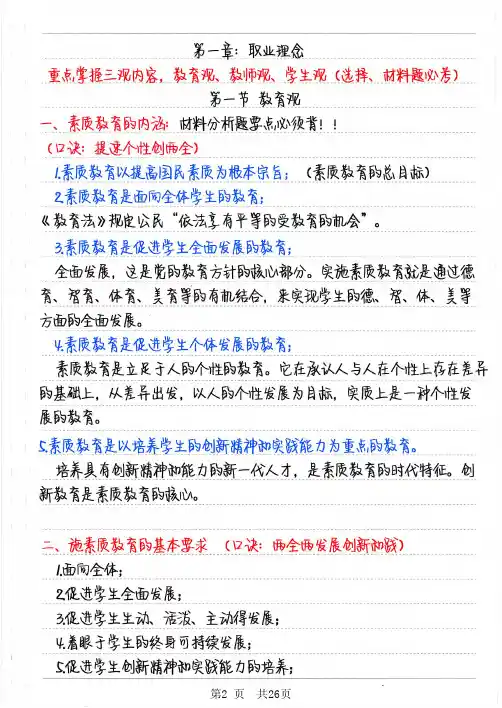 第一章：职业理念
重点掌握三观内容，教育观、教师观、学生观（选择、材料题必考）
第一节 教育观
一、素质教育的内涵：材料分析题要点必须背！！
（口诀：提速个性创两全）
1.素质教育以提高国民素质为根本宗旨；（素质教育的总目标）
2.素质教育是面向全体学生的教育；
《教育法》规定公民“依法享有平等的受教育的机会”。
3.素质教育是促进学生全面发展的教育；
全面发展，这是党的教育方针的核心部分。实施素质教育就是通过德
育、智育、体育、美育等的有机结合，来实现学生的德、智、体、美等
方面的全面发展。
4.素质教育是促进学生个体发展的教育；
素质教育是立足于人的个性的教育。它在承认人与人在个性上存在差异
的基础上，从差异出发，以人的个性发展为目标，实质上是一种个性发
展的教育。
5.素质教育是以培养学生的创新精神和实践能力为重点的教育。
培养具有创新精神和能力的新一代人才，是素质教育的时代特征。创
新教育是素质教育的核心。
二、施素质教育的基本要求 （口诀：两全两发展创新和践）
1.面向全体；
2.促进学生全面发展；
3.促进学生生动、活泼、主动得发展；
4.着眼于学生的终身可持续发展；
5.促进学生创新精神和实践能力的培养；
第2 页 共26页